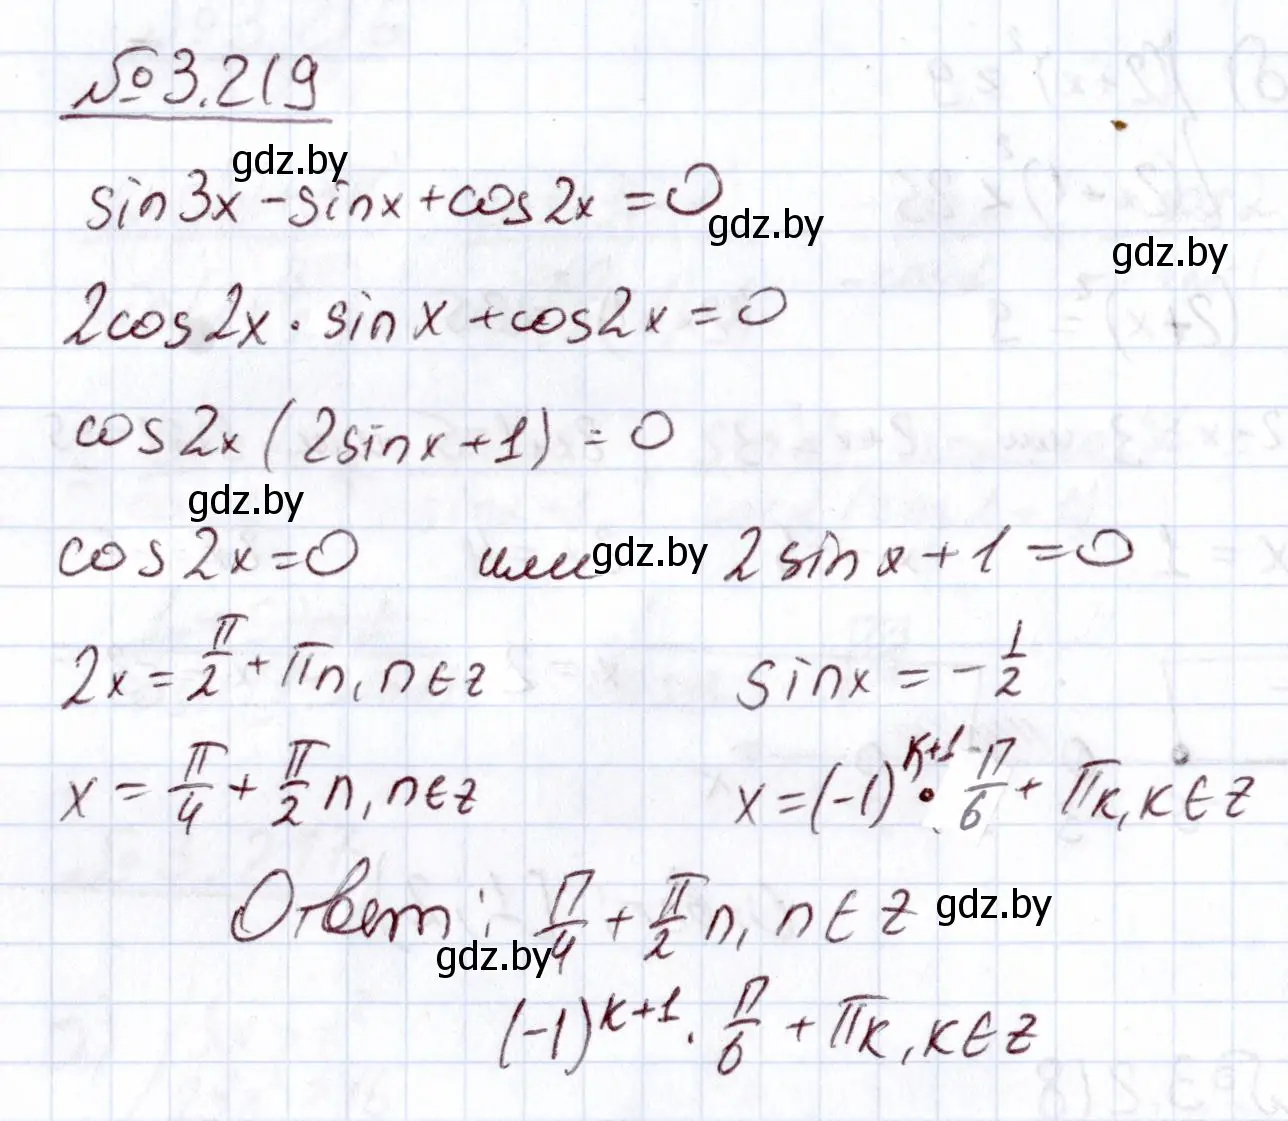 №3.219
gdz.by
sin3x - sinx + cos2x = 0
gdz.by
gdz.by
2cos2x · sin x + cos2x = 0
cos2x (2sinx + 1) = 0
gdz.by
cos2x = 0 или 2 sin x + 1 = 0
gdz.by
2x = π/2 + πn, n ∈ z sinx = - 1/2
x = π/4 + π/2 n, n ∈ z x = (-1)^(k+1) · π/6 + πk, k ∈ z
Ответ: π/4 + π/2 n, n ∈ z
gdz.by
gdz.by
(-1)^(k+1) · π/6 + πk, k ∈ z